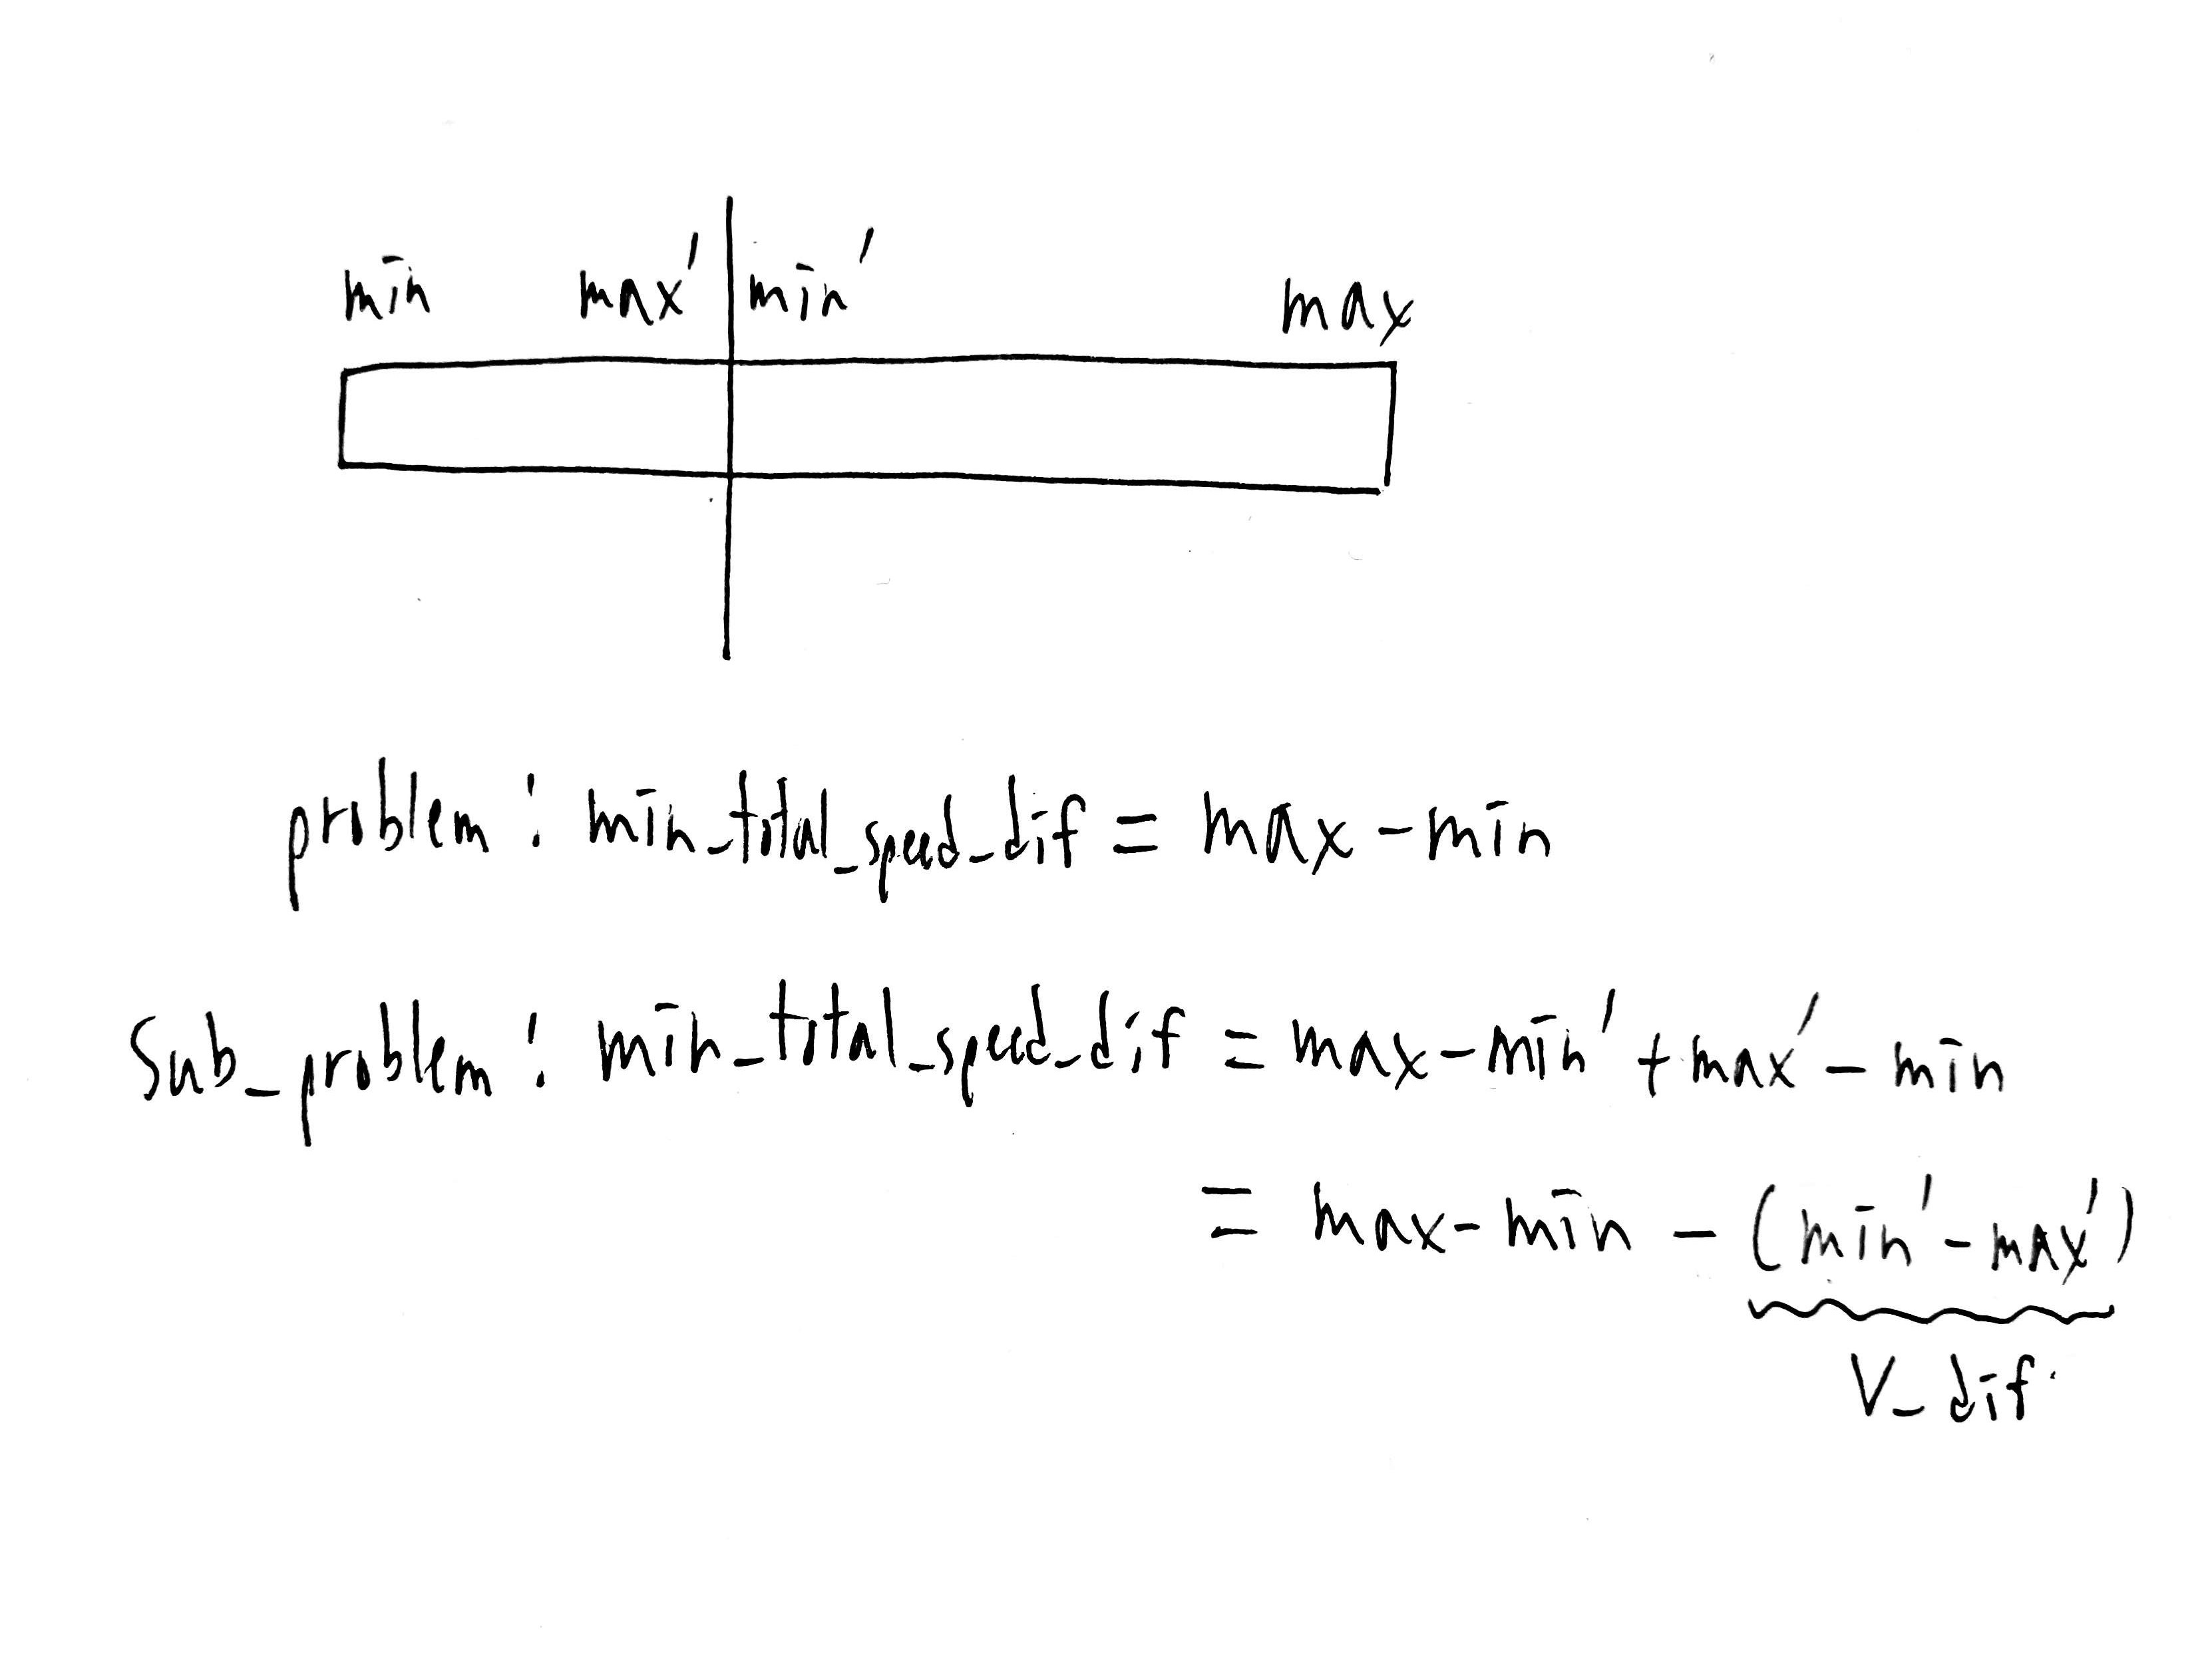 min max' min' max
problem : min_total_speed_dif = max - min
Sub_problem : min_total_speed_dif = max - min' + max' - min
= max - min - (min' - max')
V_dif